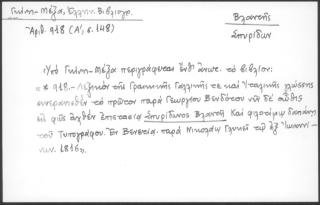 Γκίνη-Μέξα, Ἑλλην. Βιβλιογρ.
Ἀριθ. 918 (Α', σ. 148)
Βλαντῆς
Σπυρίδων
Ὑπό Γκίνη-Μέξα περιγράφεται ἔνθ' ἀνωτ. τό βιβλίον:
"* 918.- Λεξικόν τῆς Γραικικῆς Γαλλικῆς τε καί Ἰταλικῆς γλώσσης
συνερανισθέν τό πρῶτον παρά Γεωργίου Βενδότου νῦν δέ αὖθις
εἰς φῶς ἀχθέν ἐπιστασίᾳ Σπυρίδωνος Βλαντῆ καί φιλοτίμῳ δαπάνῃ
τοῦ Τυπογράφου. Ἐν Βενετίᾳ. παρά Νικολάῳ Γλυκεῖ τῷ ἐξ Ἰωαννί-
νων. 1816".